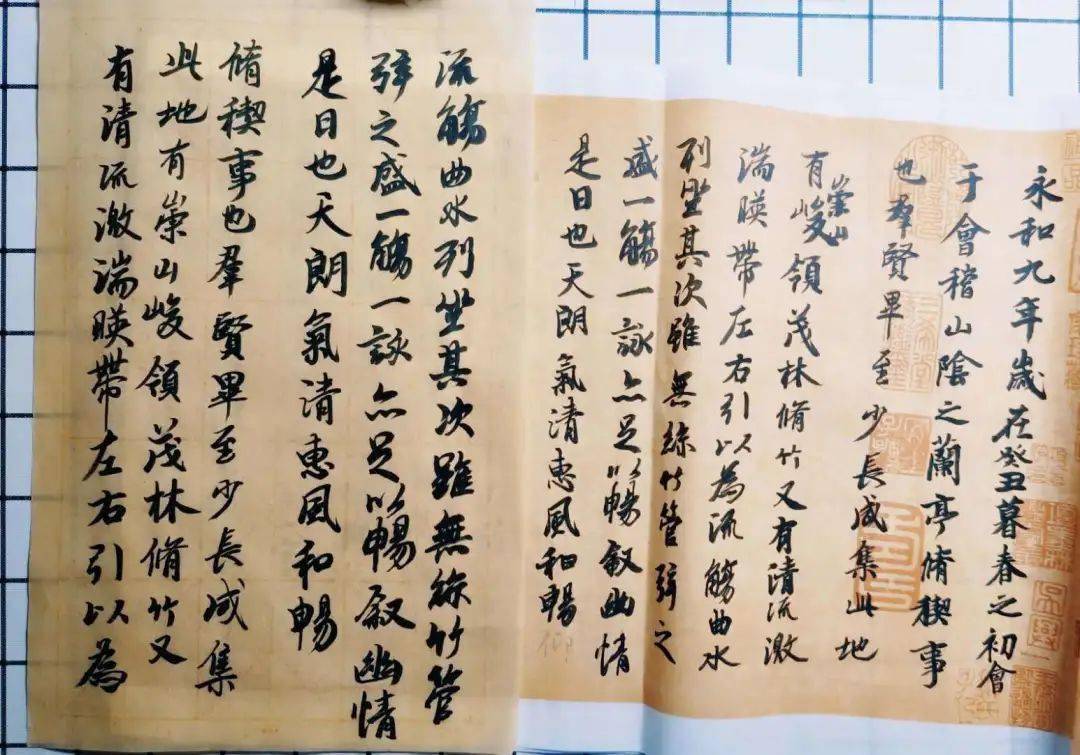 永和九年歲在癸丑暮春之初會
于會稽山陰之蘭亭脩稧事
也羣賢畢至少長咸集此地
有崇山峻領茂林脩竹又有清流激
湍暎帶左右引以為流觴曲水
列坐其次雖無絲竹管弦之
盛一觴一詠亦足以暢叙幽情
是日也天朗氣清惠風和暢仰
流觴曲水列坐其次雖無絲竹管
弦之盛一觴一詠亦足以暢叙幽情
是日也天朗氣清惠風和暢
脩稧事也羣賢畢至少長咸集
此地有崇山峻領茂林脩竹又
有清流激湍暎帶左右引以為